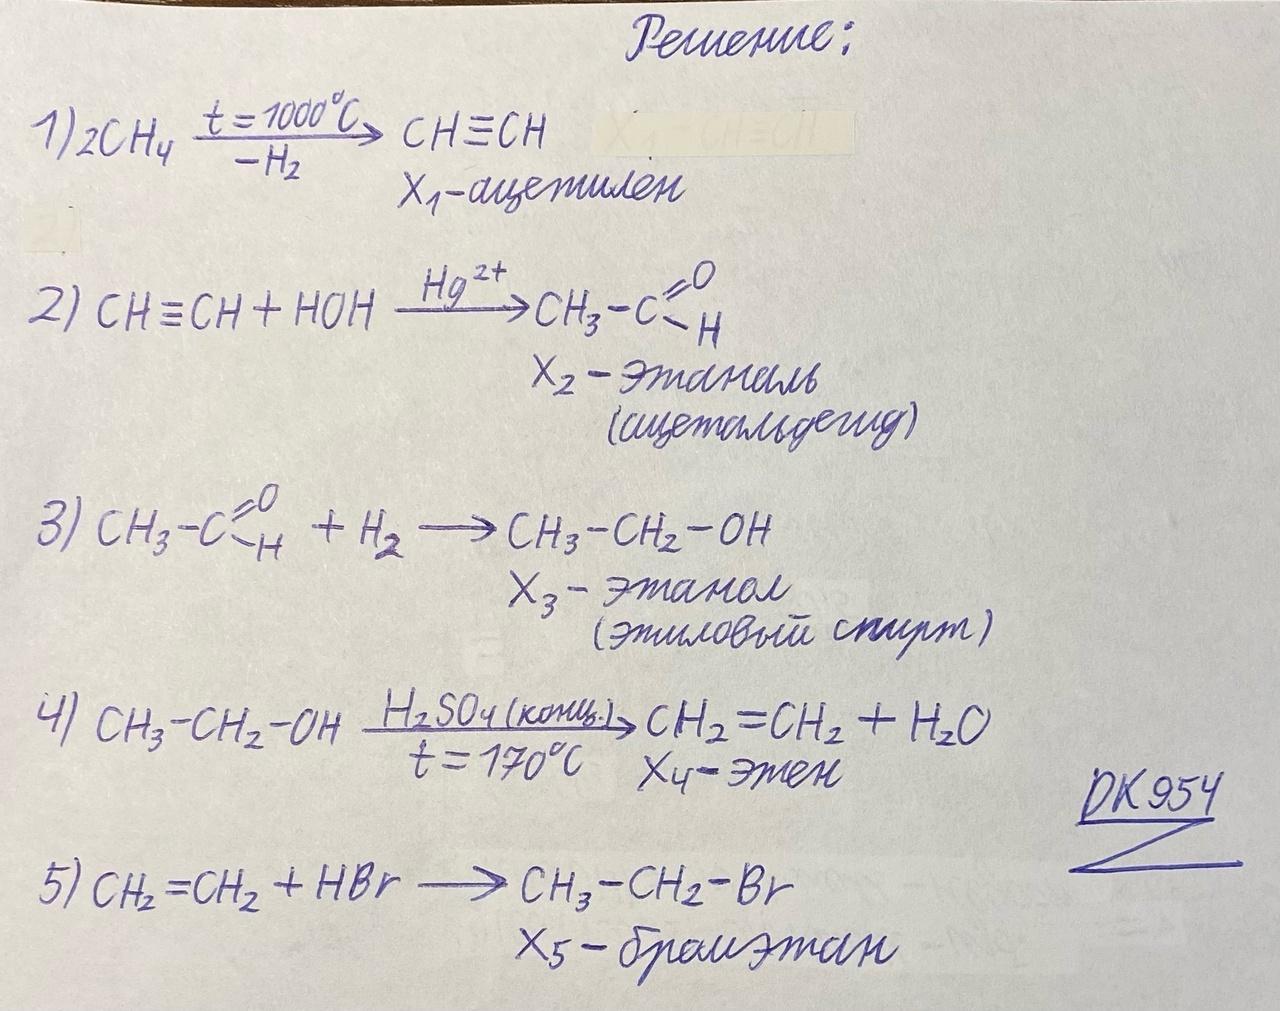 Решение:
1) 2CH₄ —t = 1000°C, −H₂→ CH≡CH
X₁-ацетилен
2) CH≡CH + HOH —Hg²⁺→ CH₃-C(=O)-H
X₂ - этаналь
(ацетальдегид)
3) CH₃-C(=O)-H + H₂ → CH₃-CH₂-OH
X₃ - этанол
(этиловый спирт)
4) CH₃-CH₂-OH —H₂SO₄(конц.), t = 170°C→ CH₂=CH₂ + H₂O
X₄-этен
DK954
5) CH₂=CH₂ + HBr → CH₃-CH₂-Br
X₅ - бромэтан